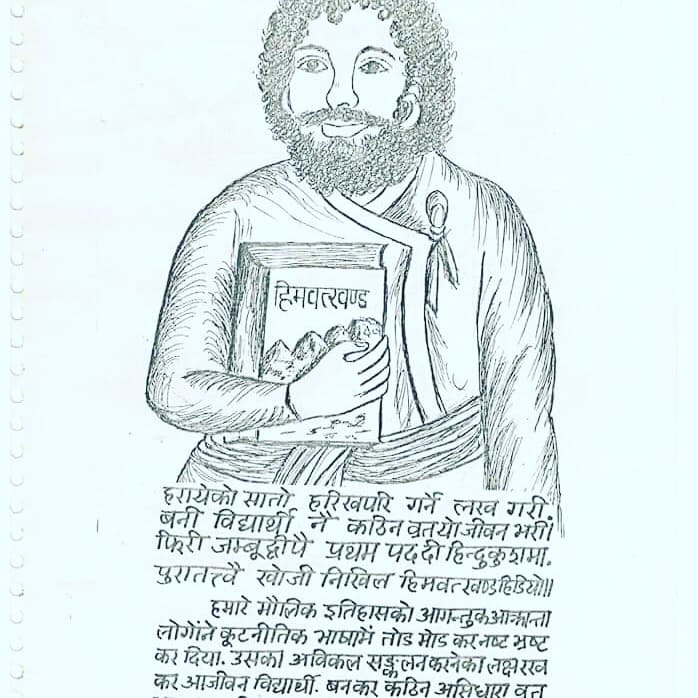 हिमवत्खण्ड
हरायेको सातो हरिखपरि गर्ने लख गरी,
बनी विद्यार्थी नै कठिन व्रतयो जीवन भरी।
फिरी जम्बूद्वीपै प्रथम पद दी हिन्दुकुशमा,
पुरातत्त्वै खोजी निखिल हिमवत्खण्ड हिडियो॥
हमारे मौलिक इतिहासको आगन्तुक आक्रान्ता
लोगोंने कूटनीतिक भाषामें तोड मोड कर नष्ट भ्रष्ट
कर दिया. उसका अविकल सङ्कलन करनेका लक्ष रख
कर आजीवन विद्यार्थी. बनकर कठिन असिधारा व्रत